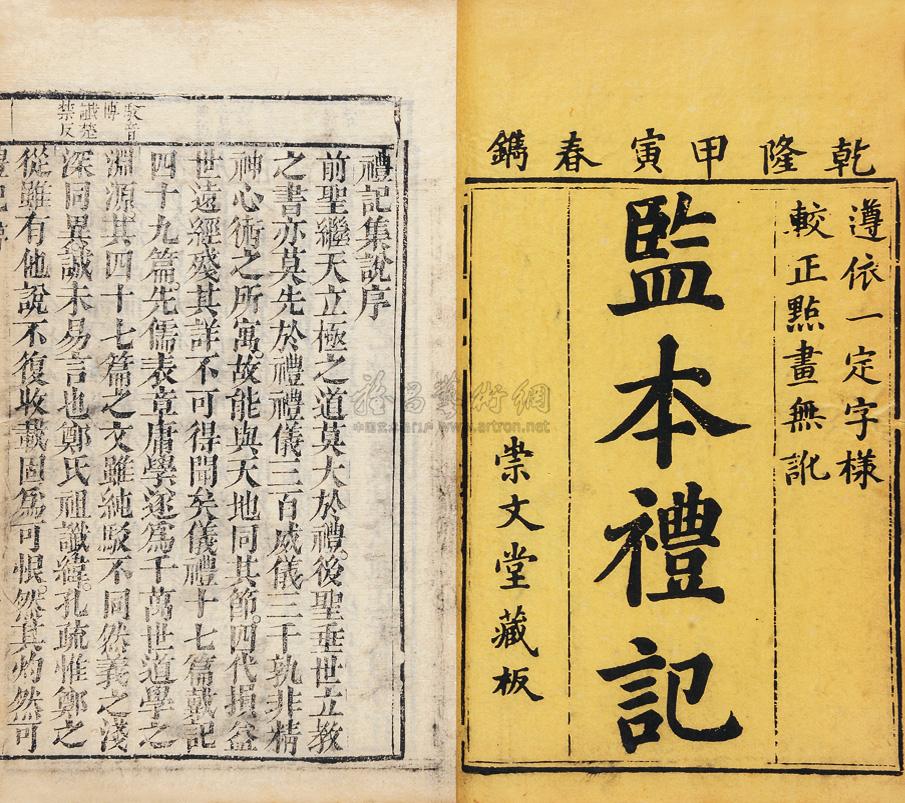 乾隆甲寅春鐫
遵依一定字樣
較正點畫無訛
監本禮記
崇文堂藏板
禮記集說序
前聖繼天立極之道莫大於禮後聖垂世立教
之書亦莫先於禮禮儀三百威儀三千孰非精
神心術之所寓故能與天地同其節四代損益
世遠經殘其詳不可得聞矣儀禮十七篇戴記
四十九篇先儒表章庸學遂爲千萬世道學之
淵源其四十七篇之文雖純駁不同然義之淺
深同異誠未易言也鄭氏祖讖緯孔疏惟鄭之
從雖有他說不復收載固爲可恨然其灼然可
駁音
博
讖楚
禁反
www.artron.net